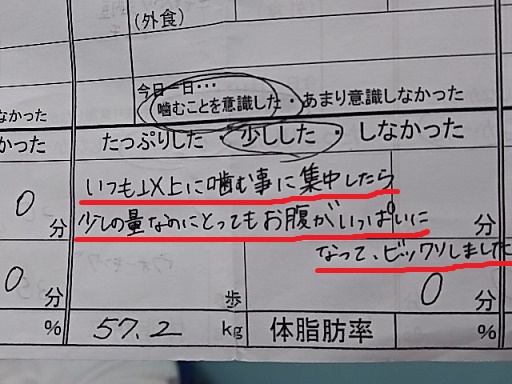 (外食)
今日一日・・・
なかった
噛むことを意識した・あまり意識しなかった
かった
たっぷりした・少しした・しなかった
いつも以上に噛む事に集中したら
0
分
少しの量なのにとってもお腹がいっぱいに
0
分
なって、ビックリしました
0
分
歩
0
分
%
57.2
kg
体脂肪率
%